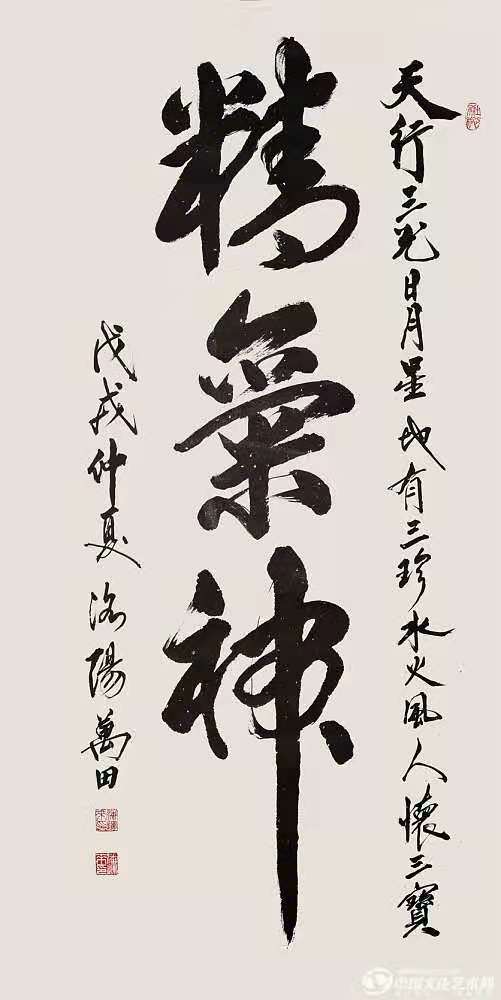 天行三光日月星地有三珍水火風人懷三寶
精氣神
戊戌仲夏洛陽萬田
中国文化艺术网